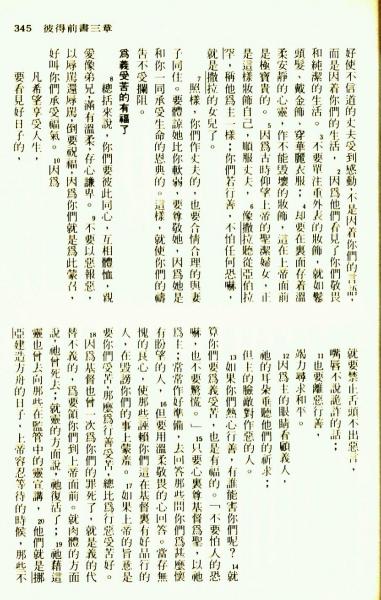 345 彼得前書三章
好使不信道的丈夫受到感動，不是因着你們的言語，
而是因着你們的生活，2因爲他們看見了你們敬畏
和純潔的生活。3不要單注重外表的妝飾，就如鬈
頭髮、戴金飾、穿華麗衣服；4却要在裏面存着溫
柔安靜的心靈，作不能毀壞的妝飾，這在上帝面前
是極寶貴的。5因爲古時仰望上帝的聖潔婦女，正
是這樣妝飾自己，順服丈夫，6像撒拉聽從亞伯拉
罕，稱他爲主一樣；你們若行善，不怕任何恐嚇，
就是撒拉的女兒了。
7照樣，你們作丈夫的，也要合情合理的與妻
子同住。要體諒她比你軟弱，要尊敬她，因爲她是
和你一同承受生命的恩典的。這樣，就使你們的禱
告不受攔阻。
爲義受苦的有福了
8總括來說，你們要彼此同心，互相體恤，親
愛像弟兄，滿有溫柔，存心謙卑。9不要以惡報惡，
以辱罵還辱罵，倒要祝福，因爲你們就是爲此蒙召，
好叫你們承受福氣。10因爲
凡希望享受人生，
要看見好日子的，
就要禁止舌頭不出惡言，
嘴唇不說詭詐的話；
11也要離惡行善，
竭力尋求和平。
12因爲主的眼睛看顧義人，
祂的耳朵垂聽他們的祈求；
但主的臉敵對作惡的人。
13如果你們熱心行善，有誰能害你們呢？14就
算你們要爲義受苦，也是有福的。「不要怕人的恐
嚇，也不要驚慌。」15只要心裏尊基督爲聖，以祂
爲主；常常作好準備，去回答那些問你們爲甚麽懷
有盼望的人，16但要用溫柔敬畏的心回答。當存無
愧的良心，使那些誣賴你們這在基督裏有好品行的
人，在毀謗你們的事上蒙羞。17如果上帝的旨意是
要你們受苦，那麽爲行善受苦，總比爲行惡受苦好。
18因爲基督也曾一次爲你們的罪死了，就是義的代
替不義的，爲要領你們到上帝面前。就肉體的方面
說，祂曾死去；就靈的方面說，祂復活了；19祂藉這
靈也曾去向那些在監管中的靈宣講，20他們就是挪
亞建造方舟的日子，上帝容忍等待的時候，那些不